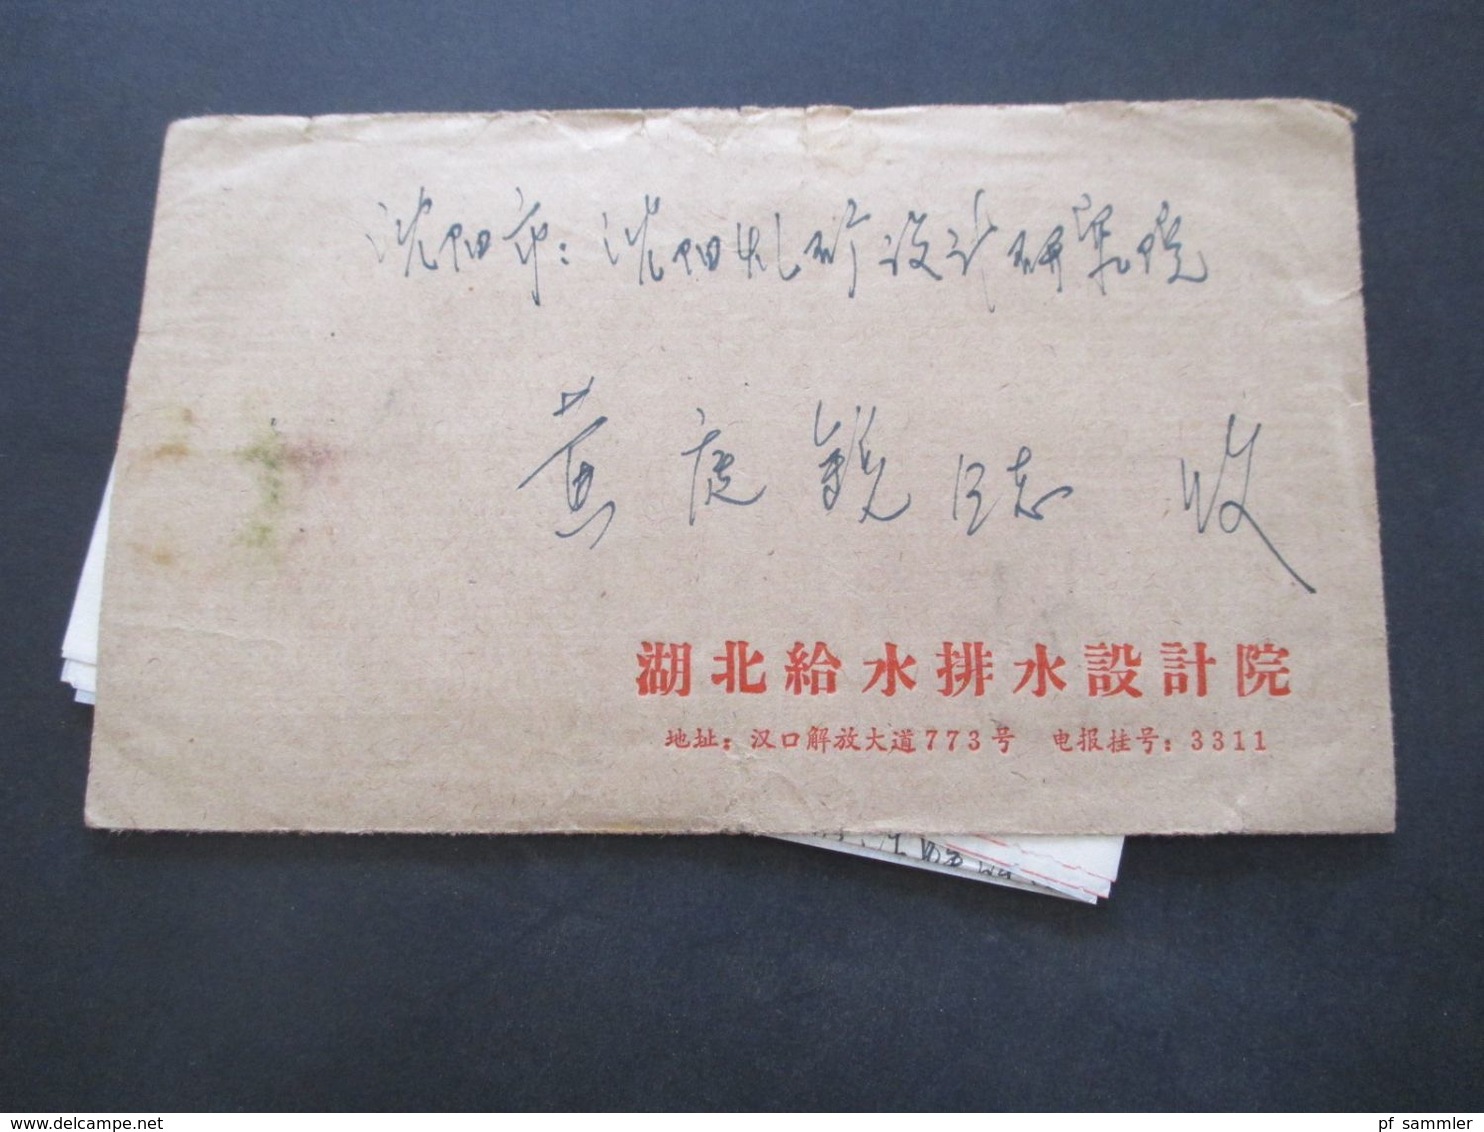 沈阳市：沈阳化矿设计研究院
黄庭锐同志 收
湖北給水排水設計院
地址：汉口解放大道773号 电报挂号：3311
delcampe.net
pf_sammler